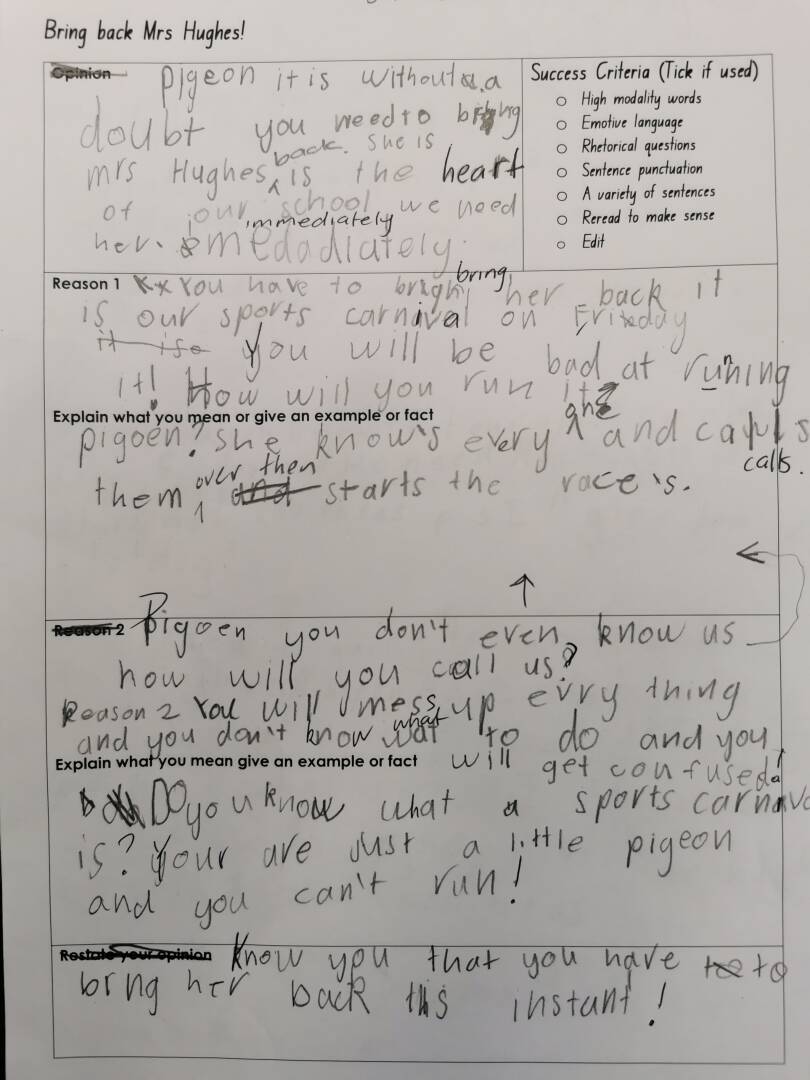 Bring back Mrs Hughes!
Opinion pigeon it is without a
doubt you need to bring
back. she is
mrs Hughes is the heart
of our school we need
immediately
her. emedadiately.
Success Criteria (Tick if used)
High modality words
Emotive language
Rhetorical questions
Sentence punctuation
A variety of sentences
Reread to make sense
Edit
bring
Reason 1 You have to brigh her back it
is our sports carnival on Friday
it is You will be bad at runing
n
it! How will you run it
Explain what you mean or give an example or fact
one
pigoen? she know's every and calls
calls.
over then
them and starts the race's.
Reason 2 Pigoen you don't even know us
how will you call us?
Reason 2 You will mess up evry thing
what
and you don't know wat to do and you
Explain what you mean give an example or fact will get confused!
Do you know what a sports carnava
is? Your are just a little pigeon
and you can't run!
Restate your opinion Know you that you have to to
brng her back this instant!